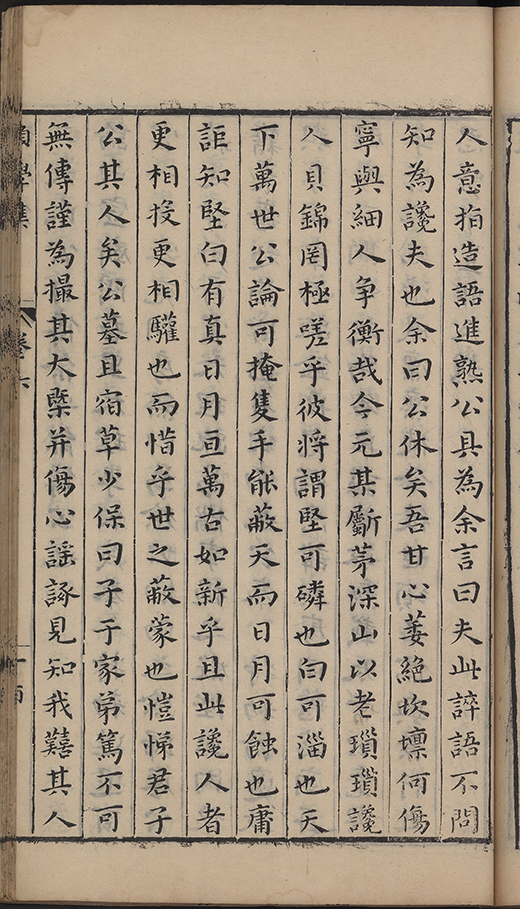 人意指造語進熟公具為余言曰夫此誶語不問
知為讒夫也余曰公休矣吾甘心萎絕坎壈何傷
寧與細人爭衡哉令元某斸茅深山以老瑣瑣讒
人貝錦罔極嗟乎彼將謂堅可磷也白可淄也天
下萬世公論可掩隻手能蔽天而日月可蝕也庸
詎知堅白有真日月亘萬古如新乎且此讒人者
更相投更相驩也而惜乎世之蔽蒙也愷悌君子
公其人矣公墓且宿草少保曰子于家弟篤不可
無傳謹為撮其大槩并傷心謡諑見知我囏其人
學集
卷六